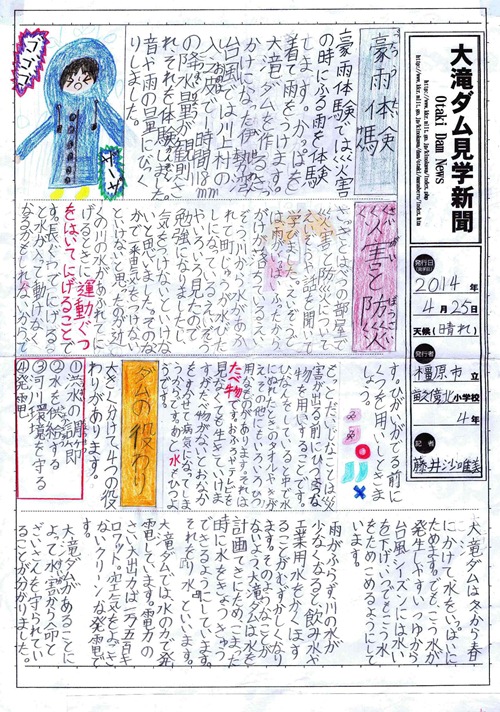 大滝ダム見学新聞
Otaki Dam News
発行日
2014年
4月25日
天候(晴れ)
発行者
橿原市立
畝傍北小学校
4年
記者
豪雨体験
豪雨体験では災害
の時にふる雨を体験
します。かっぱを
着て雨をつけます。
大滝ダムを作るき
かけになった伊勢湾
台風では川上村の
入之波で1時間118mm
の降水量が観測さ
れそれを体験しました。
音や雨の量にびっく
りしました。
ゴゴゴ
ザーザー
災害と防災
さいがい ぼうさい
さいごとはべつの部屋で
災害と防災について
えいぞうや話を聞いて
学びました。えいぞうで
は雨がいっぱい
がけがくずれているえい
ぞうや川から水があふ
れて町じゅうが水びたし
になっているえいぞう
やいろいろ見たので
勉強になりました。しぜんは
気をつけないといけない
と思いました。そのな
かで一番気をつけな
いといけないと思ったのが近
くの川の水があふれてに
げるときに運動ぐつ
をはいてにげることで
す。長ぐつでにげる
と水が入って動けなく
なるかもしれないからで
す。ひがいがでる前に
くつを用いしときま
しょう。
もっとだいじなことは災
害が出る前にひつような
物を用いすることです。
ひなんをしている中で水
にぬれたときのタオルやきが
え、その他にもいろいろひ
用な物がありますそれは
たべ物です。おふろやテレビを
見なくても生きていけま
すがたべ物がないとおなか
をすかせて病気になってしま
うからですあと水もひつよ
うです。
ダムの役わり
大きく分けて4つの役
わりがあります。
①洪水の調節
②水を供給する
③河川環境を守る
④発電
大滝ダムは冬から春
にかけて水をいっぱいに
ためます。でもこう水が
発生しやすいつゆから
台風シーズンには水い
を下げ、いつでもこう水
をためこめるようにして
います。
雨がふらず川の水が
少なくなると飲み水や
工業用水をかくほす
ることがむずかしくなり
ます。そのようなことが
ないよう、大滝ダムは水を
計画てきにため、こまった
時に水をきょうきゅう
できるようにしています。
それを『り水』といいます。
大滝ダムでは水の力で発
電しています。電力の
さい大出力は一万五百キ
ロワット。空気をよごさ
ないクリーンな発電で
す。
大滝ダムがあることに
よって水害から命と
ざいさんを守られてい
ることが分かりました。